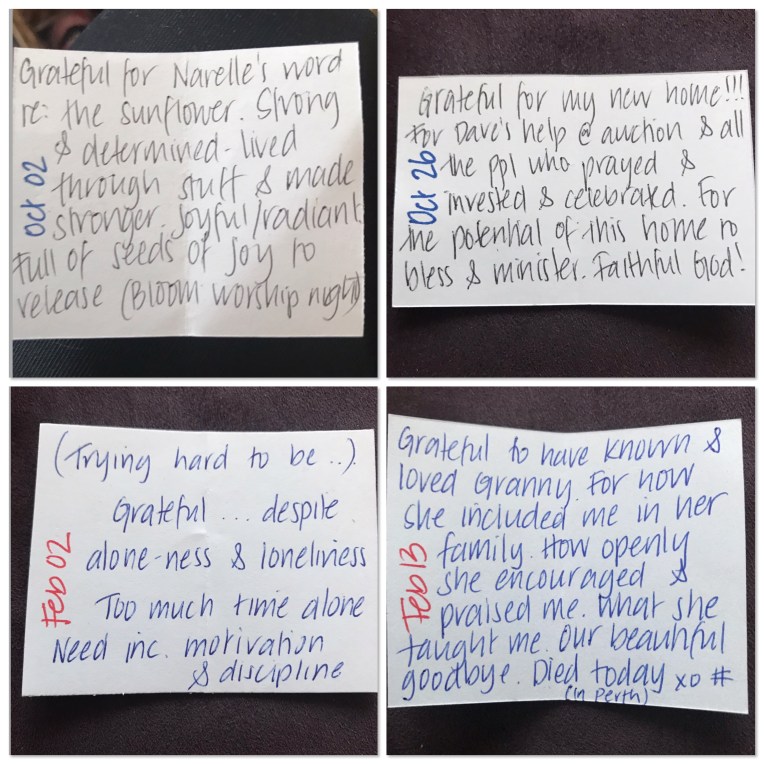 Grateful for Narelle's word
re: the sunflower. Strong
& determined - lived
through stuff & made
stronger. Joyful/radiant
Full of seeds of joy to
release (Bloom worship night)
Oct 02
Grateful for my new home!!!
For Dave's help @ auction & all
the ppl who prayed &
invested & celebrated. For
the potential of this home to
bless & minister. Faithful God!
Oct 26
(Trying hard to be ...).
Grateful ... despite
alone-ness & loneliness
Too much time alone
Need inc. motivation
& discipline
Feb 02
Grateful to have known &
loved Granny. For how
she included me in her
family. How openly
she encouraged &
praised me. What she
taught me. Our beautiful
goodbye. Died today xo #
(in Perth)
Feb 13